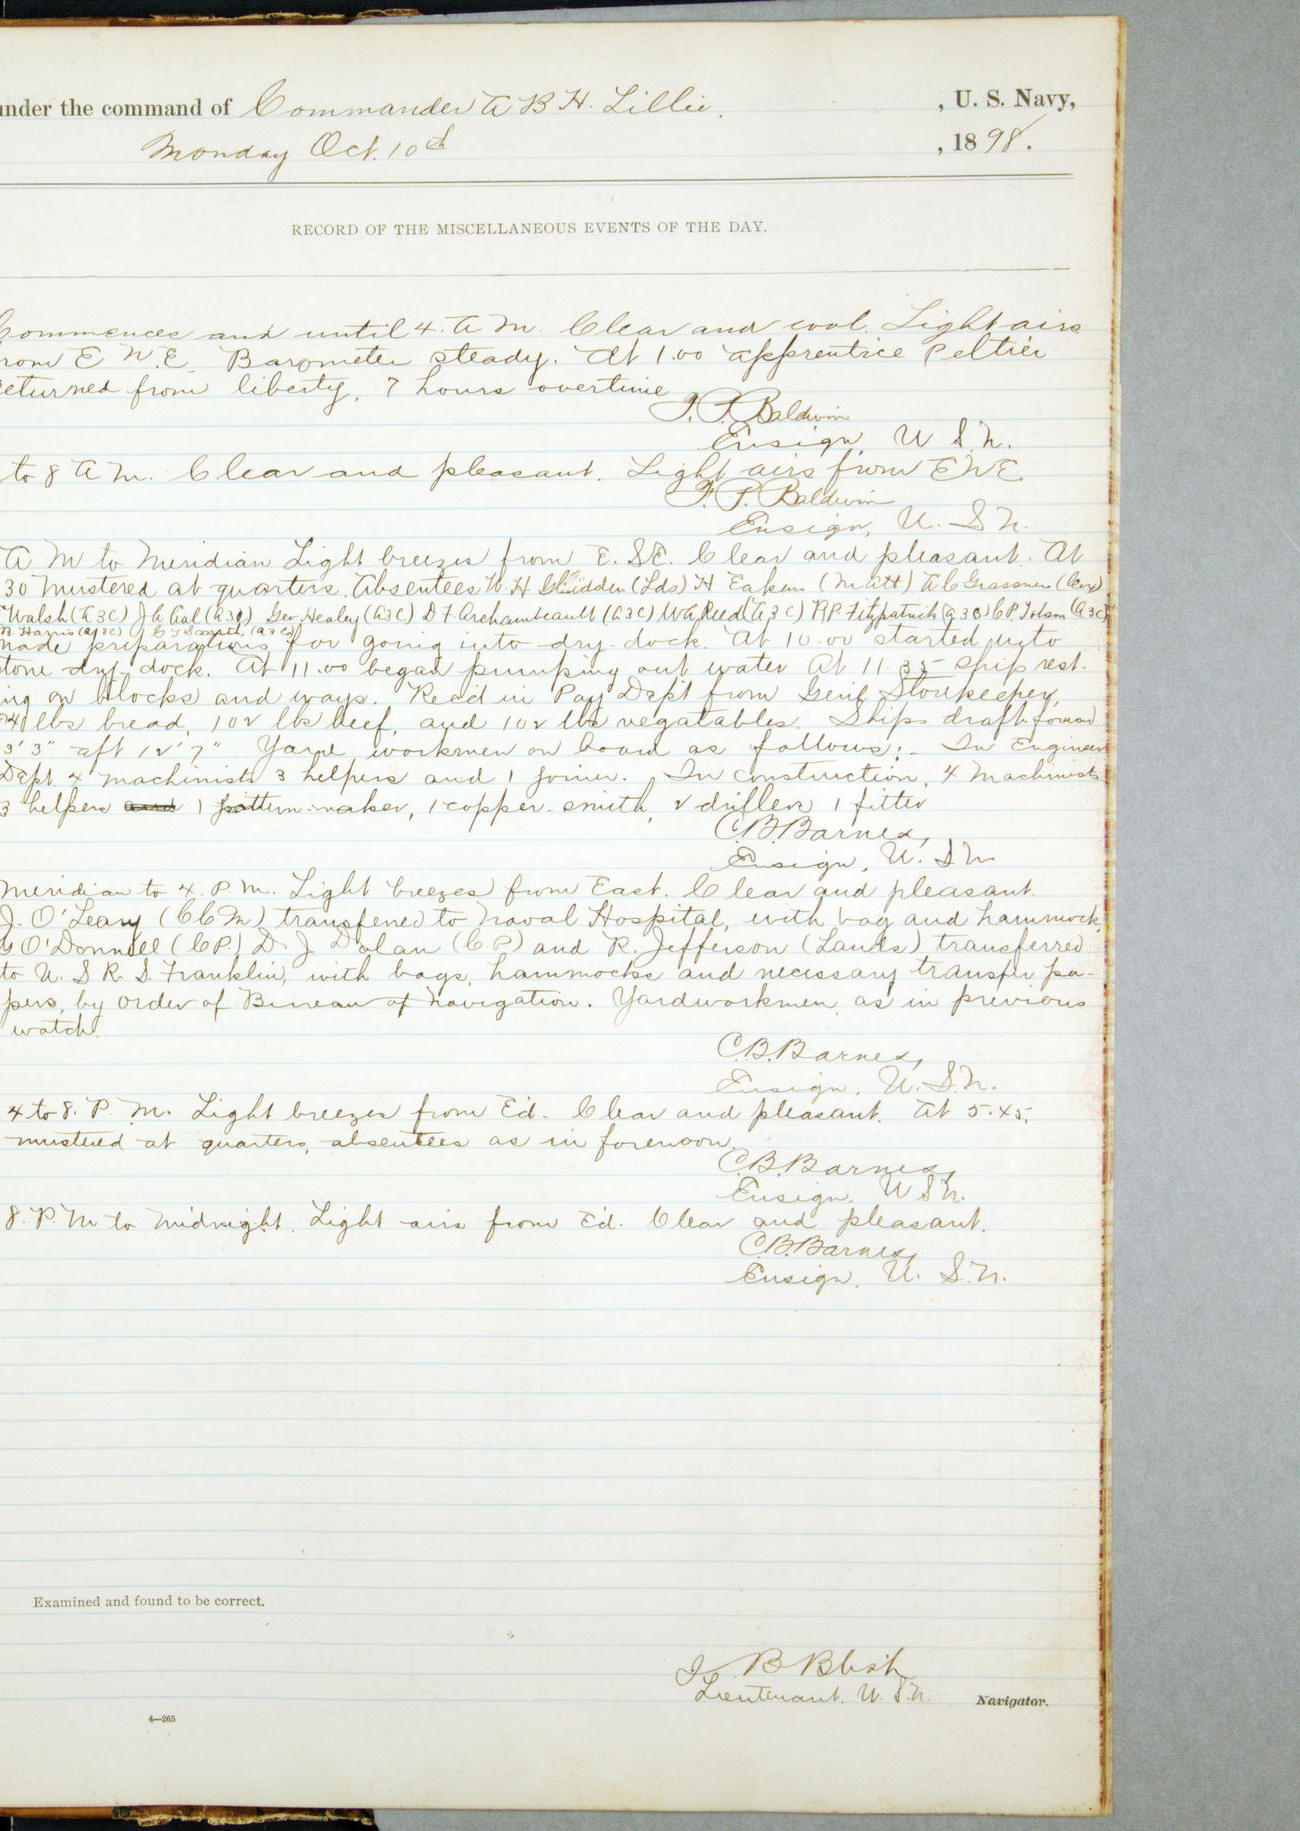 under the command of Commander A B H. Lillie. , U. S. Navy,
Monday Oct. 10th , 1898.
RECORD OF THE MISCELLANEOUS EVENTS OF THE DAY.
Commences and until 4. A M. Clear and cool. Light airs
from E N. E. Barometer steady. At 1.00 apprentice Peltier
returned from liberty, 7 hours overtime
F. P. Baldwin
Ensign, U S. N.
to 8 A M. Clear and pleasant. Light airs from ENE
F. P. Baldwin
Ensign, U. S N.
A M to Meridian Light breezes from E. SE. Clear and pleasant. At
30 Mustered at quarters. Absentees W. H Glidden (Lds) H Eaken (Matt) A C Grassmen (Cox)
Walsh (A 3 C) J A Aal (A 3 C) Geo. Healey (A3C) D F. Archambeault (A 3 C) W A Reed (A 3 C) R P. Fitzpatrick (A 3 C) C P. (A 3 C)
R. Harris (A 3 C) (A 3 C)
made preparations for going into dry-dock. At 10.00 started into
stone dry-dock. At 11.00 began pumping out water At 11.35 ship rest-
ing on blocks and ways. Rec'd in Pay Dep't from Gen'l Storekeeper,
lbs bread, 102 lbs beef, and 102 lbs vegatables. Ships draft forward
3' 3" aft 12' 7" Yard workmen on board as follows:- In Engineer
Dept 4 machinists 3 helpers and 1 joiner. In construction, 4 Machinists
3 helpers and 1 pattern-maker, 1 copper-smith, 2 drillers 1 fitter
C. B. Barnes,
Ensign, U. S. N
Meridian to 4. P. M. Light breezes from East. Clear and pleasant.
J. O'Leary (CCM) transfered to Naval Hospital, with bag and hammock,
G O'Donnell (CP) D. J Dolan (C P) and R. Jefferson (Lands) transferred
to U. S R. S. Franklin, with bags, hammocks and necessary transfer pa-
pers, by order of Bureau of Navigation. Yardworkmen, as in previous
watch.
C. B. Barnes,
Ensign, U. S. N.
4 to 8. P. M. Light breezes from E'd. Clear and pleasant. At 5.45.
mustered at quarters, absentees as in forenoon.
C. B. Barnes,
Ensign. U S N.
8. P. M to Midnight. Light airs from E'd. Clear and pleasant.
C. B. Barnes,
Ensign. U. S. N.
Examined and found to be correct.
J B Blish
Lieutenant. U. S. N. Navigator.
4—265